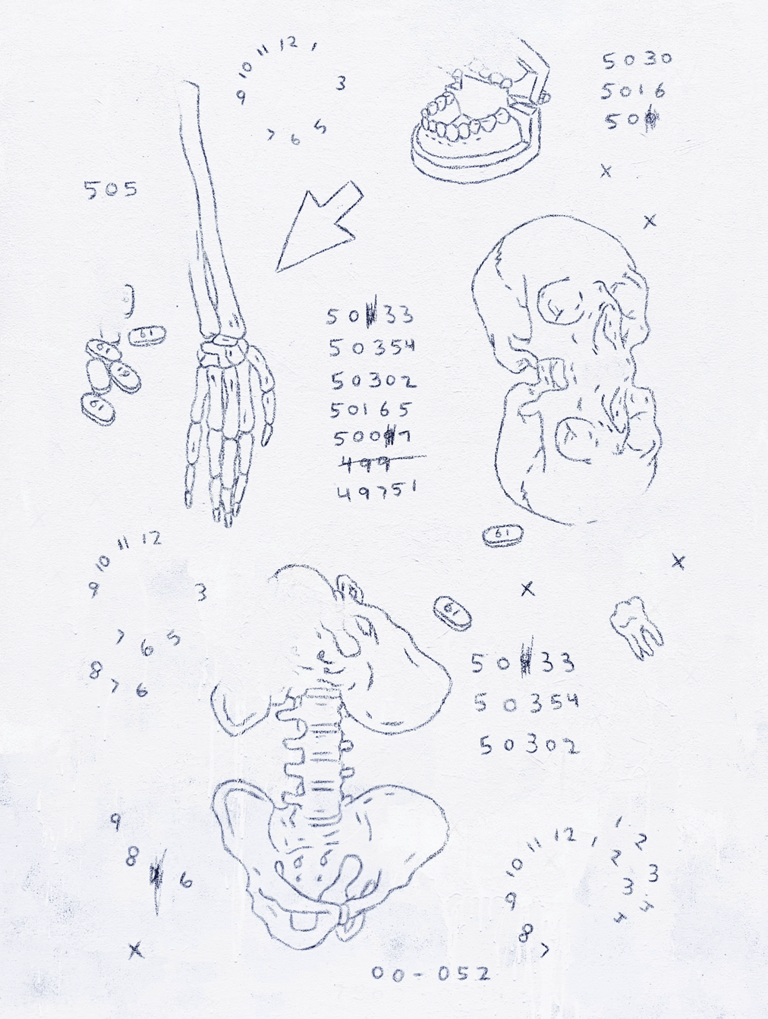 11 12 1
10
9 3
7 6 5
5030
5016
505
50 33
50354
50302
50165
500 7
499
49751
11 12
10
9 3
7 6 5
8 7 6
61
50 33
50354
50302
9
8 6
11 12 1
10
9
8 7
1 2
2 3
3 4
4
00-052